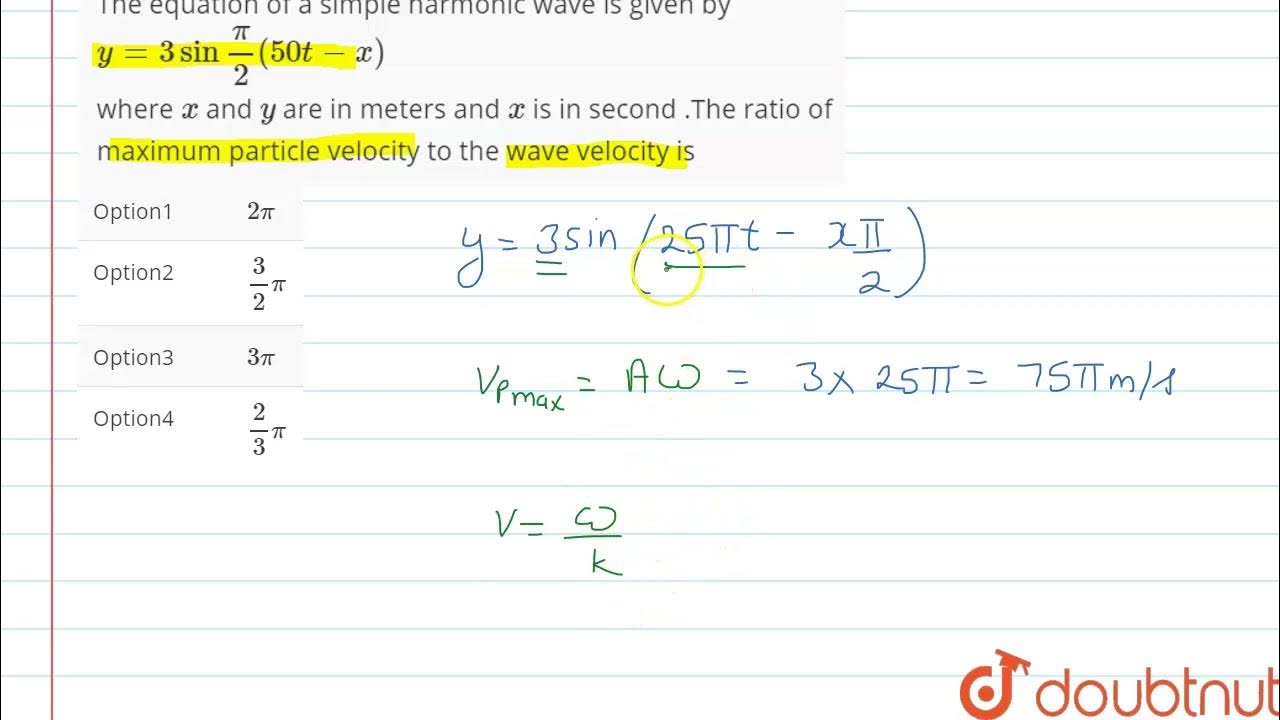 The equation of a simple harmonic wave is given by
y = 3 sin π/2 (50t − x)
where x and y are in meters and x is in second .The ratio of
maximum particle velocity to the wave velocity is
Option1 2π
Option2 3/2 π
Option3 3π
Option4 2/3 π
y = 3 sin (25πt − xπ/2)
VPmax = Aω = 3 × 25π = 75π m/s
V = ω/k
doubtnut